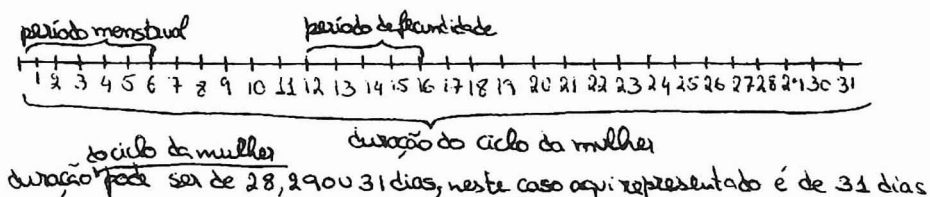 período menstrual período de fecundidade
1 2 3 4 5 6 7 8 9 10 11 12 13 14 15 16 17 18 19 20 21 22 23 24 25 26 27 28 29 30 31
duração do ciclo da mulher
do ciclo da mulher
duração pode ser de 28, 29 ou 31 dias, neste caso aqui representado é de 31 dias